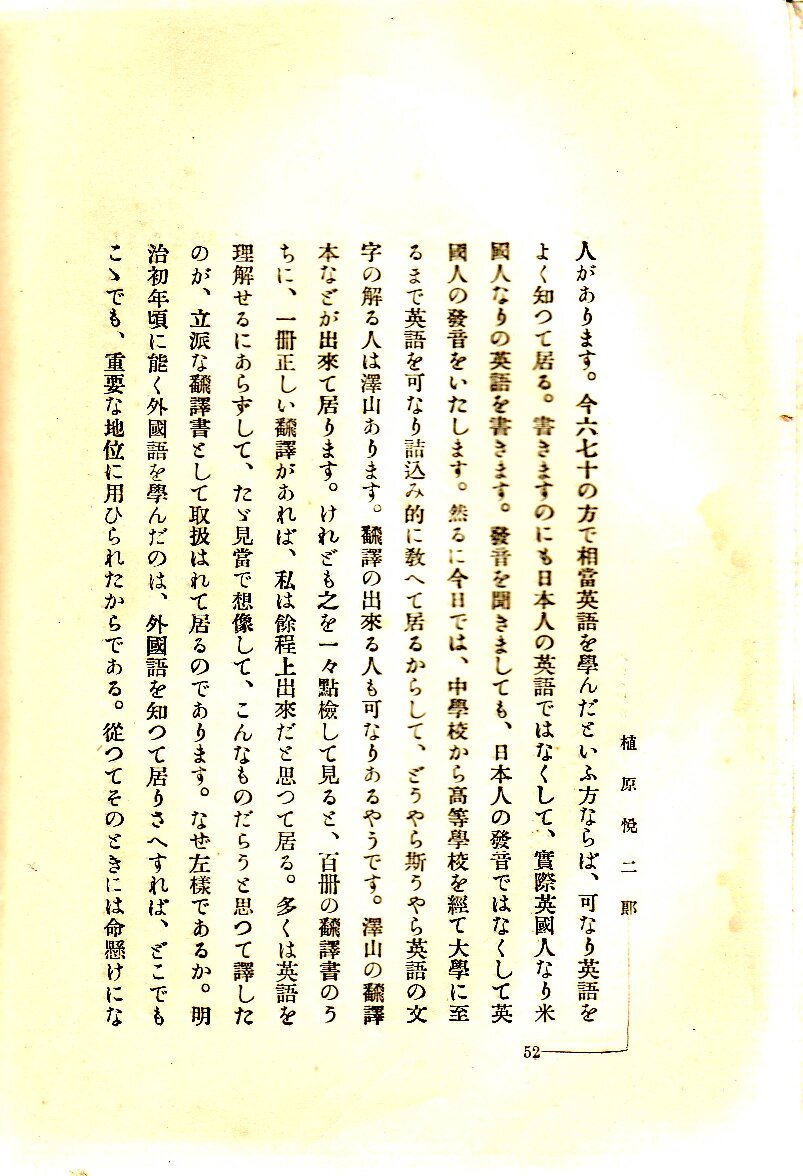 植原悦二郎
人があります。今六七十の方で相當英語を學んだといふ方ならば、可なり英語を
よく知つて居る。書きますのにも日本人の英語ではなくして、實際英國人なり米
國人なりの英語を書きます。發音を聞きましても、日本人の發音ではなくして英
國人の發音をいたします。然るに今日では、中學校から高等學校を經て大學に至
るまで英語を可なり詰込み的に敎へて居るからして、どうやら斯うやら英語の文
字の解る人は澤山あります。飜譯の出來る人も可なりあるやうです。澤山の飜譯
本などが出來て居ります。けれども之を一々點檢して見ると、百册の飜譯書のう
ちに、一册正しい飜譯があれば、私は餘程上出來だと思つて居る。多くは英語を
理解せるにあらずして、たゞ見當で想像して、こんなものだらうと思つて譯した
のが、立派な飜譯書として取扱はれて居るのであります。なぜ左樣であるか。明
治初年頃に能く外國語を學んだのは、外國語を知つて居りさへすれば、どこでも
こゝでも、重要な地位に用ひられたからである。從つてそのときには命懸けにな
52